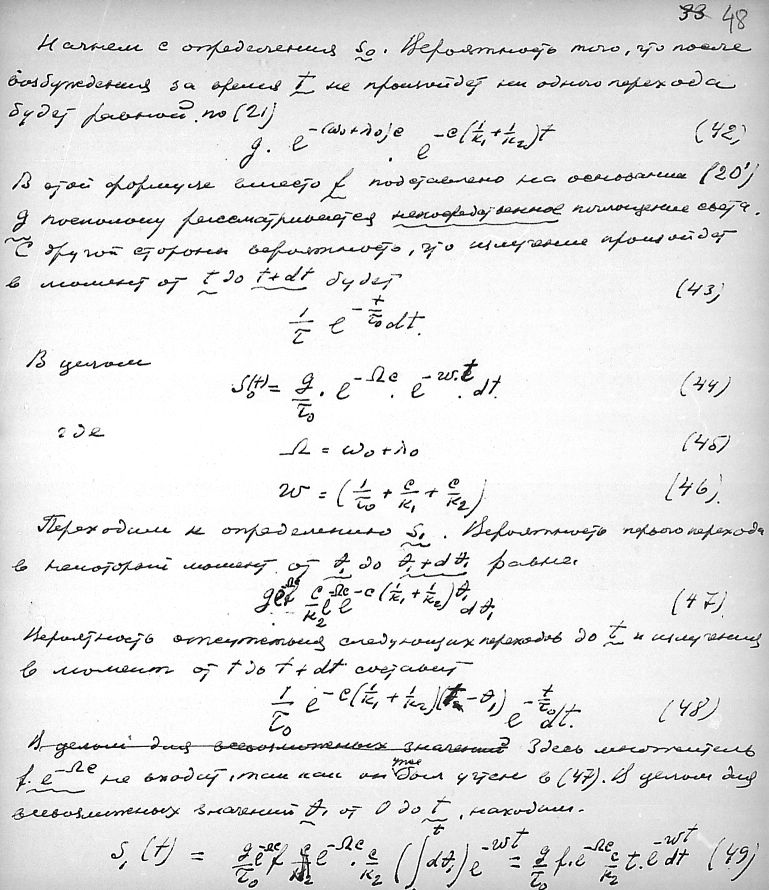 33 48
Начнем с определения s₀. Вероятность того, что после
возбуждения за время t не произойдет ни одного перехода
будет равной по (21)
g · e^{-(ω₀+λ₀)c} · e^{-c(1/κ₁ + 1/κ₂)t} (42)
В этой формуле вместо f подставлено на основании (20')
g поскольку рассматривается непосредственное поглощение света.
С другой стороны вероятность, что излучение произойдет
в момент от t до t+dt будет
(43)
1/τ e^{-t/τ₀} dt.
В целом
S₀(t) = g/τ₀ · e^{-Ωc} · e^{-w·t} · dt. (44)
где
Ω = ω₀ + λ₀ (45)
w = (1/τ₀ + c/κ₁ + c/κ₂) (46).
Переходим к определению s₁. Вероятность первого перехода
в некоторый момент от θ₁ до θ₁+dθ₁ равна
g e^{-Ωc} f c/κ₂ e^{-Ωc} e^{-c(1/κ₁ + 1/κ₂)θ₁} dθ₁ (47)
Вероятность отсутствия следующих переходов до t и излучения
в момент от t до t+dt составит
1/τ₀ e^{-c(1/κ₁ + 1/κ₂)(t-θ₁)} e^{-t/τ₀} dt. (48)
В целом для всевозможных значений Здесь множитель
f·e^{-Ωc} не входит, так как он уже был учтен в (47). В целом для
всевозможных значений θ₁ от 0 до t, находим.
S₁(t) = g/τ₀ e^{-Ωc} f e^{-Ωc} · c/κ₂ (∫^t dθ₁) e^{-wt} = g/τ₀ f·e^{-Ωc} c/κ₂ t·e^{-wt} dt (49)